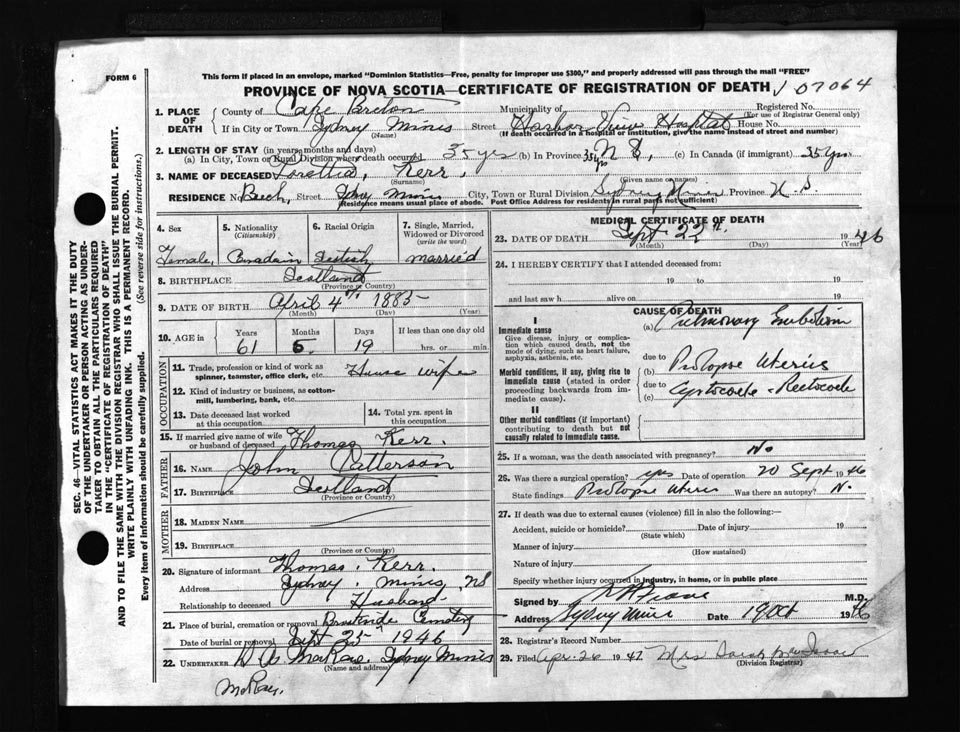 FORM 6
This form if placed in an envelope, marked "Dominion Statistics—Free, penalty for improper use $300," and properly addressed will pass through the mail "FREE"
PROVINCE OF NOVA SCOTIA—CERTIFICATE OF REGISTRATION OF DEATH
07064
SEC. 46—VITAL STATISTICS ACT MAKES IT THE DUTY
OF THE UNDERTAKER OR PERSON ACTING AS UNDER-
TAKER TO OBTAIN ALL THE PARTICULARS REQUIRED
IN THE "CERTIFICATE OF REGISTRATION OF DEATH"
AND TO FILE THE SAME WITH THE DIVISION REGISTRAR WHO SHALL ISSUE THE BURIAL PERMIT.
WRITE PLAINLY WITH UNFADING INK. THIS IS A PERMANENT RECORD.
Every item of information should be carefully supplied. (See reverse side for instructions.)
1. PLACE OF DEATH County of Cape Breton Municipality of Registered No.
(For use of Registrar General only)
If in City or Town Sydney Mines Street Harbor View Hospital House No.
(Name) (If death occurred in a hospital or institution, give the name instead of street and number)
2. LENGTH OF STAY (in years, months and days)
(a) In City, Town or Rural Division where death occurred 35 yrs (b) In Province 35 yrs N.S. (c) In Canada (if immigrant) 35 yrs
3. NAME OF DECEASED Kerr,
(Surname) (Given name or names)
RESIDENCE No. Beech, Street Sydney Mines City, Town or Rural Division Sydney Mines Province N.S.
Residence means usual place of abode. Post Office Address for residents in rural parts not sufficient)
4. Sex
5. Nationality
(Citizenship)
6. Racial Origin
7. Single, Married,
Widowed or Divorced
(write the word)
Female, married
8. BIRTHPLACE Scotland
(Province or Country)
9. DATE OF BIRTH April 4th 1885
(Month) (Day) (Year)
10. AGE in Years Months Days If less than one day old
61 5 19 hrs. or min.
OCCUPATION
11. Trade, profession or kind of work as
spinner, teamster, office clerk, etc. House wife
12. Kind of industry or business, as cotton-
mill, lumbering, bank, etc.
13. Date deceased last worked
at this occupation
14. Total yrs. spent in
this occupation
15. If married give name of wife
or husband of deceased Thomas Kerr.
FATHER
16. NAME John Patterson
17. BIRTHPLACE Scotland
(Province or Country)
MOTHER
18. MAIDEN NAME
19. BIRTHPLACE
(Province or Country)
20. Signature of informant Thomas Kerr.
Address Sydney Mines, NS
Relationship to deceased Husband
21. Place of burial, cremation or removal Cemetery
Date of burial or removal Sept 25 1946
22. UNDERTAKER Sydney Mines
(Name and address)
MEDICAL CERTIFICATE OF DEATH
23. DATE OF DEATH Sept 19 46
(Month) (Day) (Year)
24. I HEREBY CERTIFY that I attended deceased from:
19 to 19
and last saw h alive on 19
CAUSE OF DEATH
I
Immediate cause (a) Pulmonary Embolism
Give disease, injury or complica-
tion which caused death, not the
mode of dying, such as heart failure,
asphyxia, asthenia, etc.
due to
(b) Prolapse Uterus
Morbid conditions, if any, giving rise to
immediate cause (stated in order
proceeding backwards from im-
mediate cause).
due to
(c) Cystocele - Rectocele
II
Other morbid conditions (if important)
contributing to death but not
causally related to immediate cause.
25. If a woman, was the death associated with pregnancy? No
26. Was there a surgical operation? yes Date of operation 20 Sept 19 46
State findings Prolapse Uterus Was there an autopsy? N.
27. If death was due to external causes (violence) fill in also the following:—
Accident, suicide or homicide? Date of injury 19
(State which)
Manner of injury
(How sustained)
Nature of injury
Specify whether injury occurred in industry, in home, or in public place
Signed by M.D.
Address Sydney Mines Date 19 Oct 19 46
28. Registrar's Record Number
29. Filed Apr. 26 19 47 Mrs
(Division Registrar)